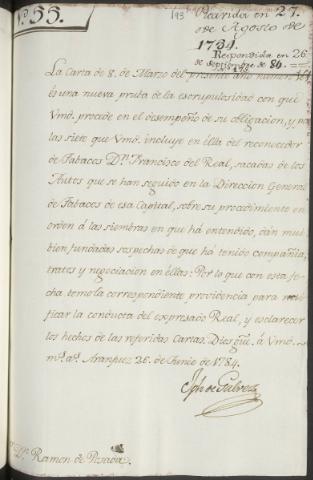 N.º 55.
193
Recivida en 27.
de Agosto de
1784.
Respondida en 26
de Septiembre de 84.
La Carta de 8. de Marzo del presente año numero 161
es una nueva prueba de la escrupulosidad con que
Vmd. procede en el desempeño de su obligacion, y por
las siete que Vmd. incluye en èlla del reconocedor
de Tabacos D.n Francisco del Real, sacadas de los
Autos que se han seguido en la Direccion General
de Tabacos de esa Capital, sobre su procedimiento en
orden á las siembras en que há entendido, dán mui
bien fundadas sospechas de que há tenido compañia,
trates y negociacion en èllas: Por lo que con esta fe-
cha tomo la correspondiente providencia para
ficar la conducta del expresado Real, y esclarecer
los hechos de las referidas Cartas. Dios gûe. á Vmd.
m.s a.s Aranjuez 26. de Junio de 1784.
Jph de Galvez
S.r D.n Ramon de Posada.